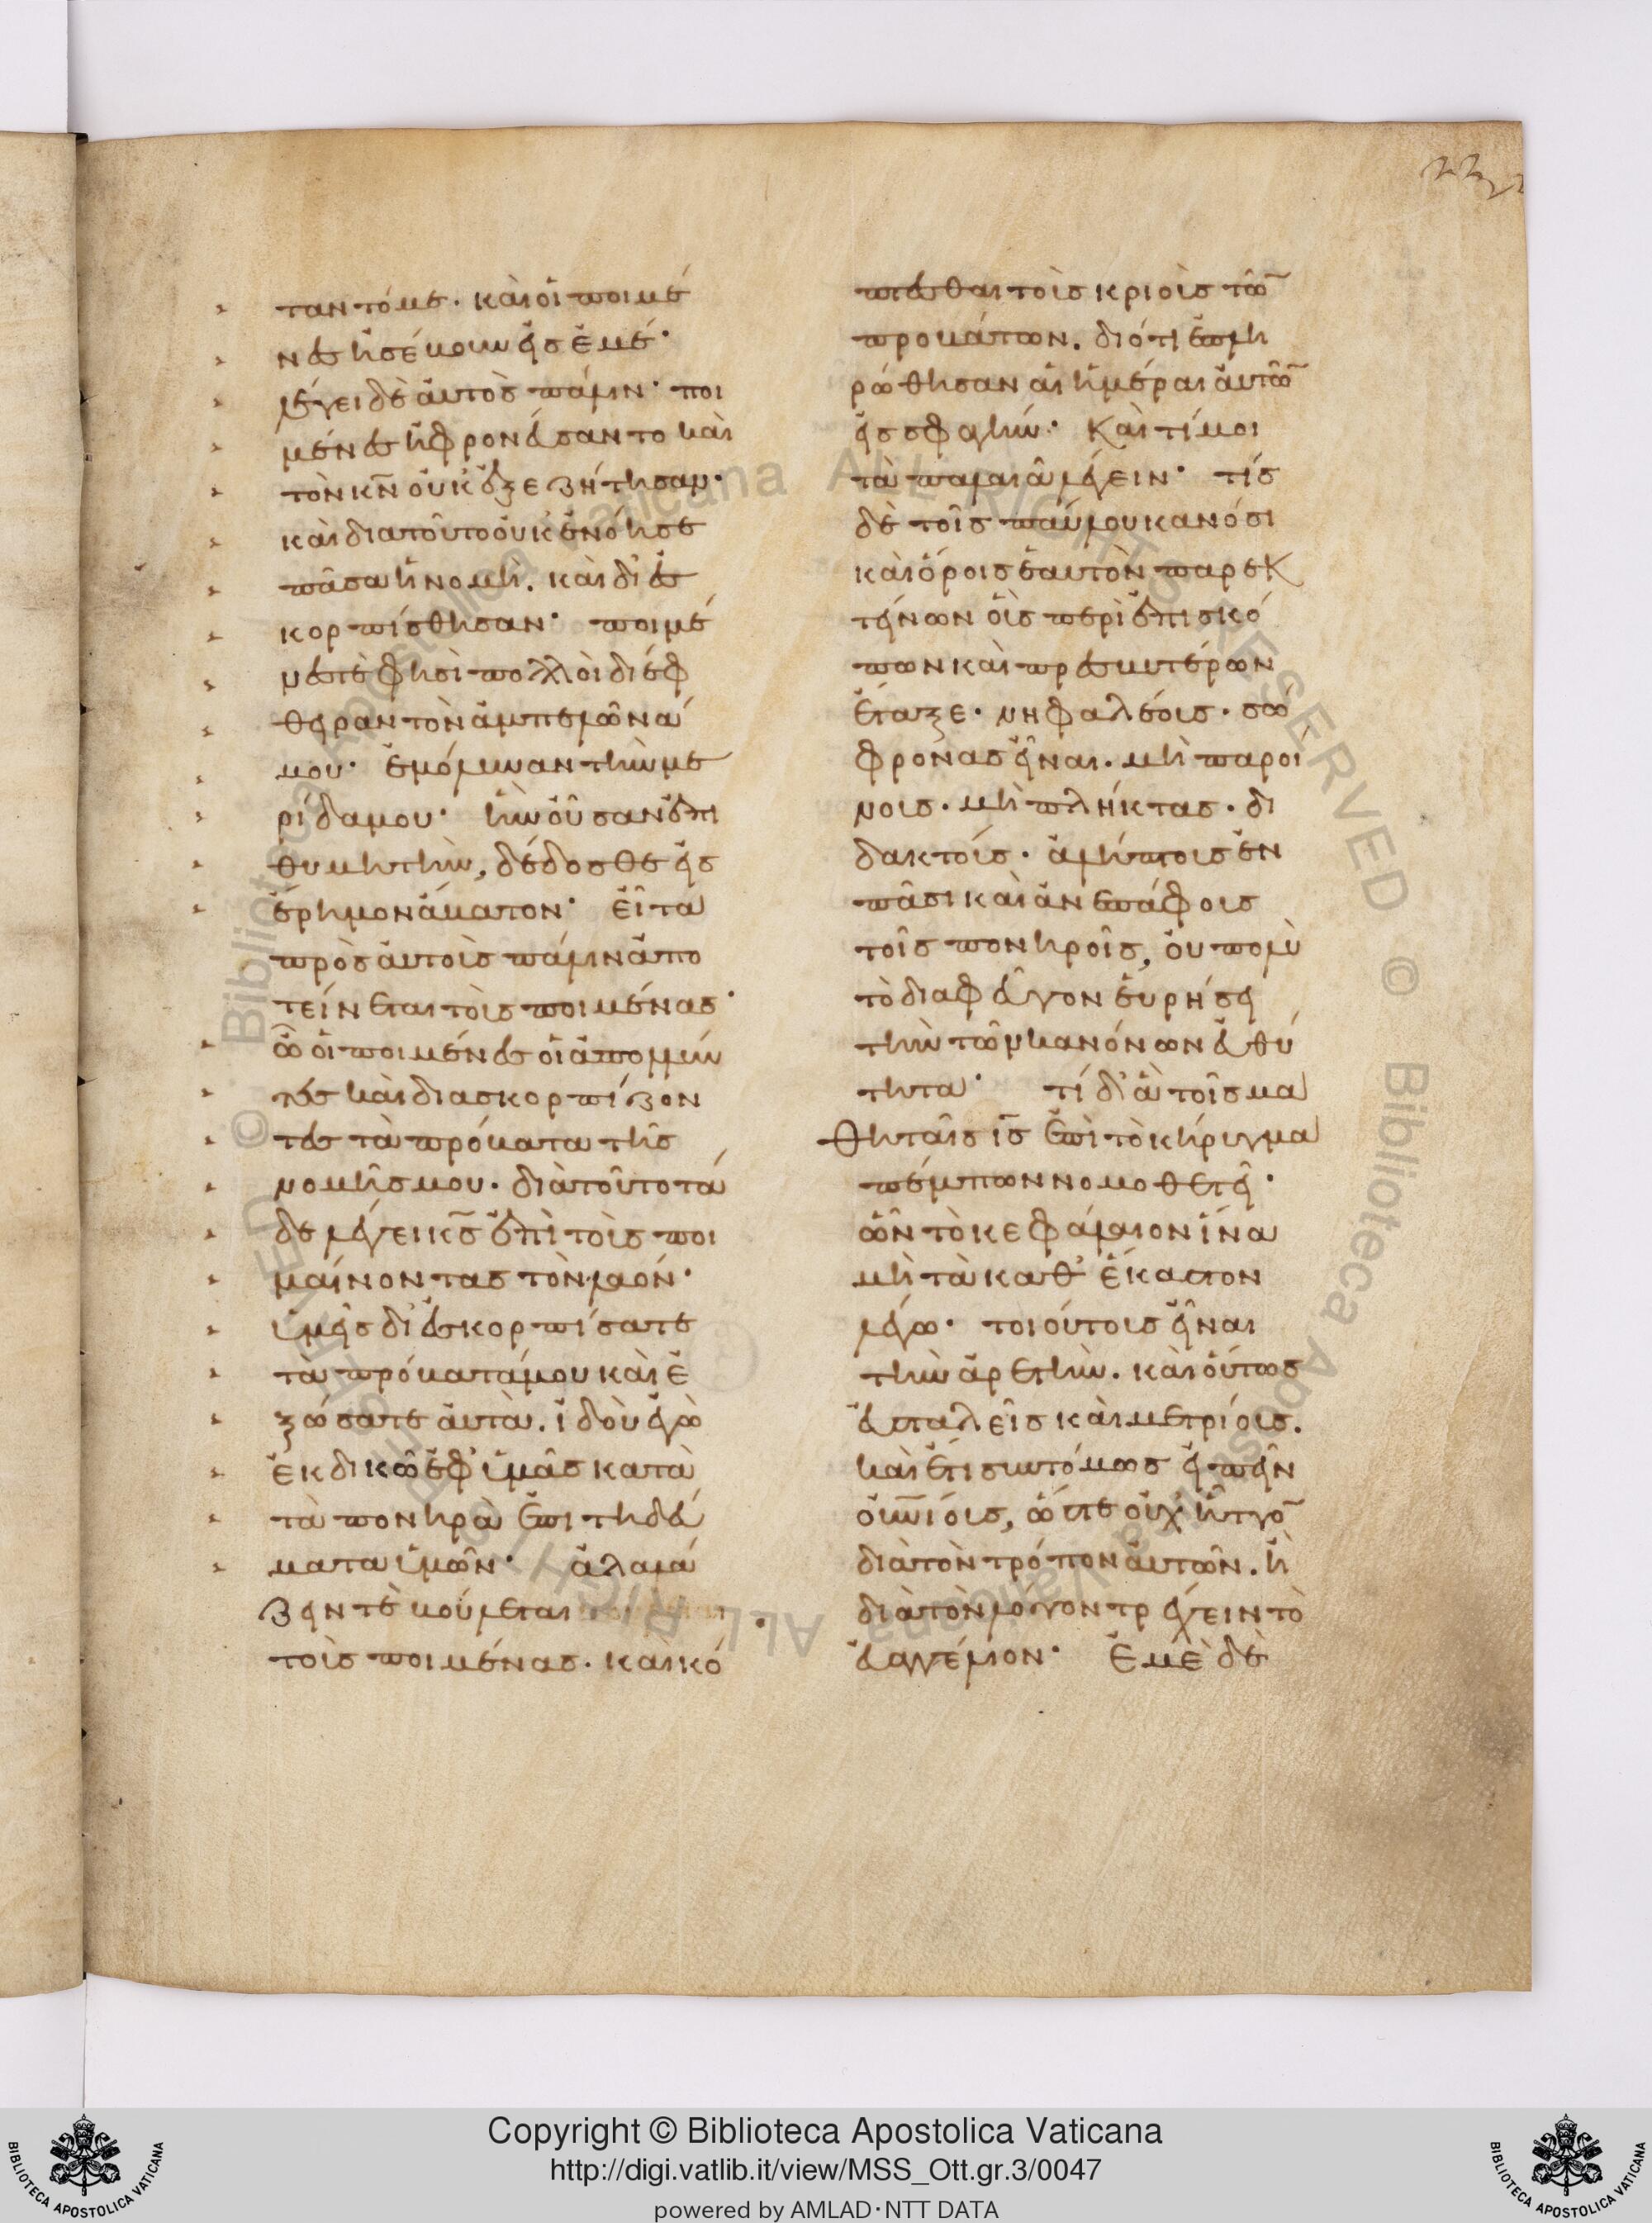 ταντό με· καὶ οἱ ποιμέ
νες ἠσέβουν εἰς ἐμέ·
λέγει δὲ αὐτὸς πάλιν· ποι
μένες ἠφρονεύσαντο καὶ
τὸν κν̅ οὐκ ἐξεζήτησαν·
καὶ διατοῦτο οὐκ ἐνόησε
πᾶσα ἡ νομὴ. καὶ διεσ
κορπίσθησαν· ποιμέ
νες τὲ φησὶ πολλοὶ διέφ
θειραν τὸν ἀμπελῶνά
μου· ἐμόλυναν τὴν με
ρίδα μου· ἣν οὖσαν ἐπι
θυμητὴν, δέδοσθε εἰς
ἔρημον ἄβατον· εἶτα
πρὸς αὐτοὺς πάλιν ἀπο
τείνεται τοὺς ποιμένας·
ὢ οἱ ποιμένες οἱ ἀπολλύν
τες καὶ διασκορπίζον
τες τὰ πρόβατα τῆς
νομῆς μου· διὰ τοῦτο τά
δε λέγει κς̅ ἐπὶ τοὺς ποι
μαίνοντας τὸν λαόν·
ὑμεῖς διεσκορπίσατε
τὰ πρόβατά μου καὶ ἐ
ξώσατε αὐτὰ. ἰδοὺ ἐγὼ
ἐκδικῶ ἐφ' ὑμᾶς κατὰ
τὰ πονηρὰ ἐπιτηδεύ
ματα ὑμῶν· ἀλαλά
ζειν τὲ βούλεται
τοὺς ποιμένας. καὶ κό
πτεσθαι τοὺς κριοὺς τῶ̅
προβάτων. διότι ἐπλη
ρώθησαν αἱ ἡμέραι αὐτῶ̅
εἰς σφαγήν· Καὶ τί μοι
τὰ παλαιὰ λέγειν· τίς
δὲ τοῖς παύλου κανόσι
καὶ ὅροις ἑαυτὸν παρεκ
τείνων οὓς περὶ ἐπισκό
πων καὶ πρεσβυτέρων
ἔταξε· νηφαλέους· σώ
φρονας εἶναι. μὴ παροί
νους· μὴ πλήκτας· δι
δακτούς· ἀλήπτους ἐν
πᾶσι καὶ ἀνεπάφους
τοῖς πονηροῖς, οὐ πολὺ
τὸ διαφεῦγον εὑρήσει
τὴν τῶν κανόνων εὐθύ
τητα· τί δ' ἃ τοῖς μα
θηταῖς ις̅ ἐπὶ τὸ κήρυγμα
πέμπων νομοθετεῖ·
ὧν τὸ κεφάλαιον ἵνα
μὴ τὰ καθ' ἕκαστον
λέγω· τοιούτους εἶναι
τὴν ἀρετὴν. καὶ οὕτως
εὐσταλεῖς καὶ μετρίους.
καὶ ἔτι συντόμως εἰπεῖν
οὐνίους, ὥστε οὐχ ἧττο̅
διὰ τὸν τρόπον αὐτῶν. ἢ
διὰ τὸν λόγον τρέχειν τὸ
εὐαγγέλιον· Ἐμὲ δὲ
Copyright © Biblioteca Apostolica Vaticana
http://digi.vatlib.it/view/MSS_Ott.gr.3/0047
powered by AMLAD·NTT DATA